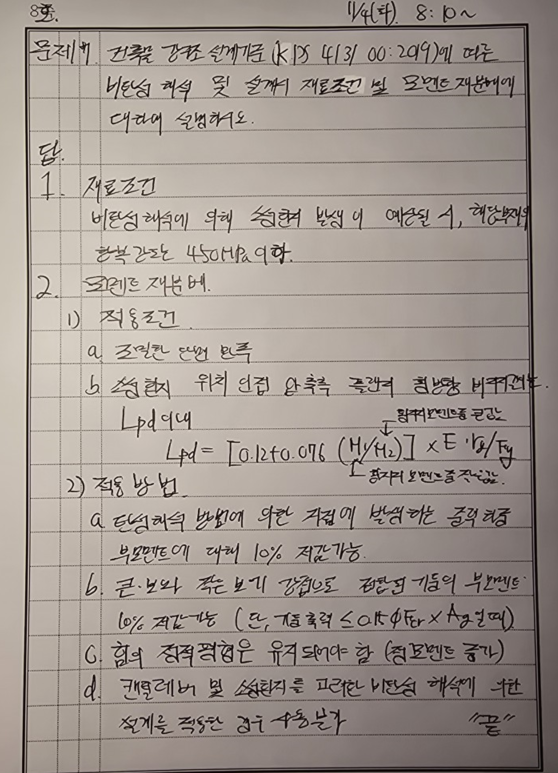 8호. 11/4(화). 8:10~
문제 7. 건축물 강구조 설계기준 (KDS 41 31 00:2019)에 따른
비탄성 해석 및 설계시 재료조건 및 모멘트 재분배에
대하여 설명하시오.
답.
1. 재료조건
비탄성해석에 의해 소성힌지 발생이 예상될 시, 해당부재의
항복강도는 450MPa 이하.
2. 모멘트 재분배.
1) 적용조건.
a. 조밀한 단면 만족
b. 소성힌지 위치 인접 압축측 플랜지 횡방향 비지지길이는
Lpd 이내 단부모멘트 중 큰값
Lpd = [0.12+0.076 (M1/M2)] × E·ry/Fy
단부의 모멘트 중 작은값.
2) 적용 방법.
a. 탄성해석 방법에 의한 지점에 발생하는 중력하중
부모멘트에 대해 10% 저감가능.
b. 큰 보와 작은보가 강접으로 접합된 기둥의 부모멘트
10% 저감가능 (단, 기둥 축력 ≤ 0.15 ΦFcr × Ag 일때)
c. 힘의 정적평형은 유지되어야 함 (정모멘트 증가)
d. 캔틸레버 및 소성힌지를 고려한 비탄성 해석에 의한
설계를 적용한 경우 사용불가 "끝"